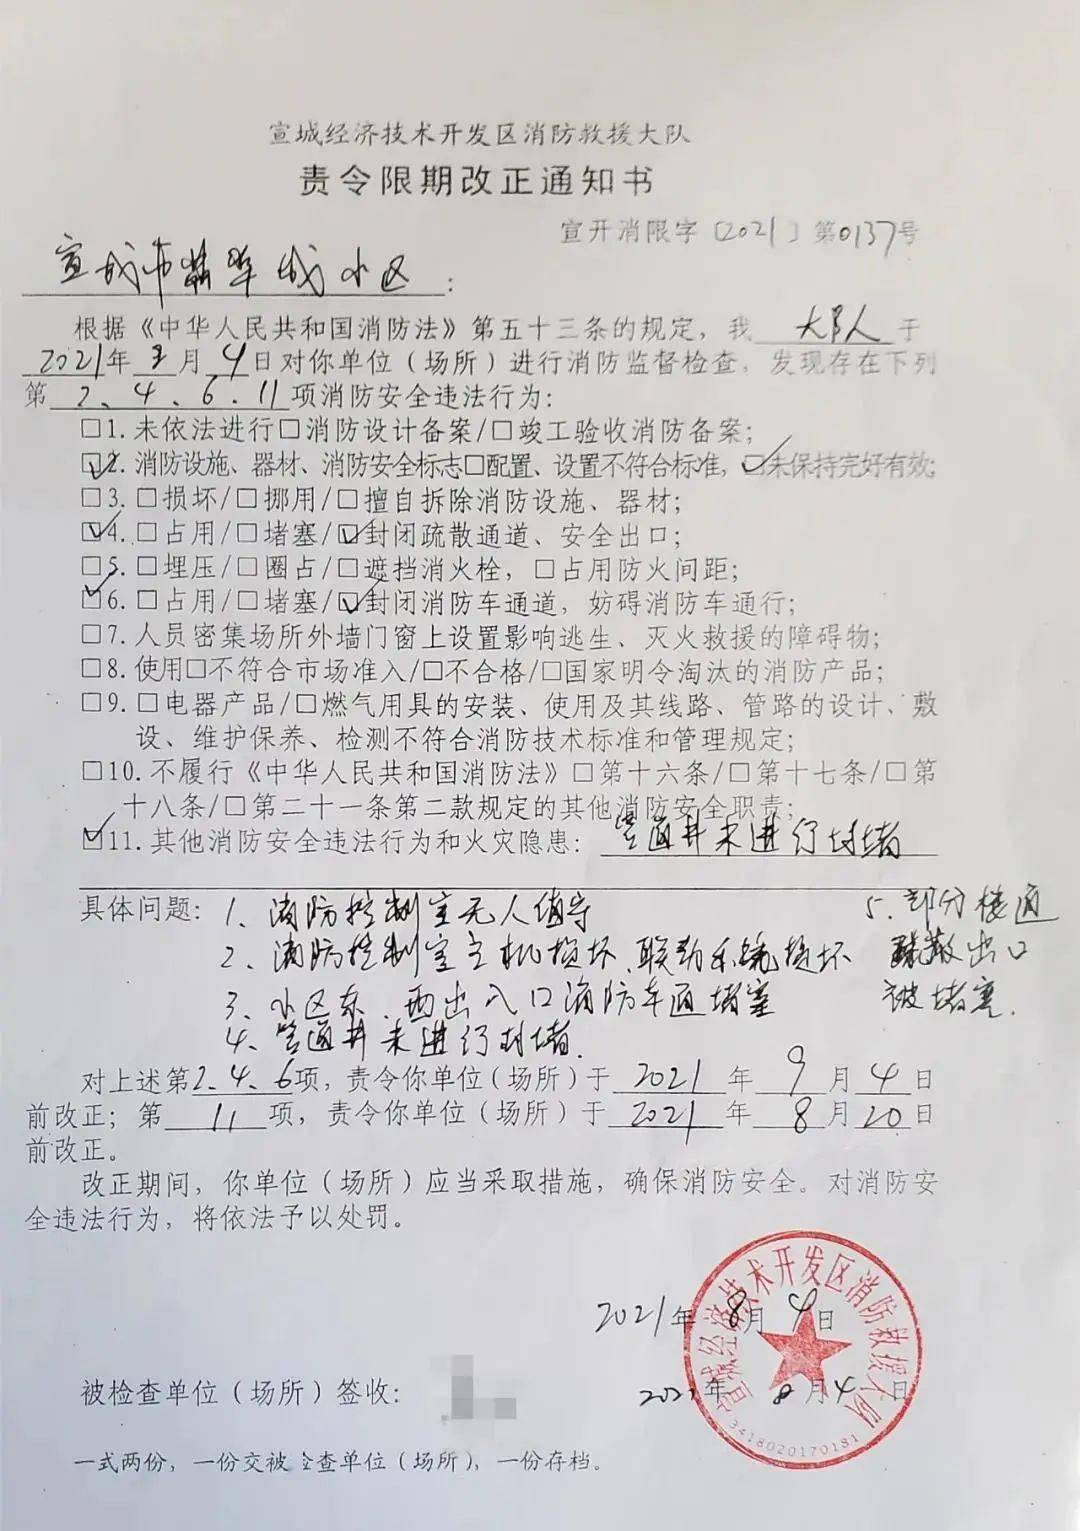 宣城经济技术开发区消防救援大队
责令限期改正通知书
宣开消限字〔2021〕第0137号
宣城市精华城小区:
根据《中华人民共和国消防法》第五十三条的规定,我 大队人 于
2021年 月 4日对你单位(场所)进行消防监督检查,发现存在下列
第 2、4、6、11项消防安全违法行为:
□1.未依法进行□消防设计备案/□竣工验收消防备案;
☑2.消防设施、器材、消防安全标志□配置、设置不符合标准,☑未保持完好有效;
□3.□损坏/□挪用/□擅自拆除消防设施、器材;
☑4.□占用/□堵塞/☑封闭疏散通道、安全出口;
□5.□埋压/□圈占/□遮挡消火栓,□占用防火间距;
☑6.□占用/□堵塞/☑封闭消防车通道,妨碍消防车通行;
□7.人员密集场所外墙门窗上设置影响逃生、灭火救援的障碍物;
□8.使用□不符合市场准入/□不合格/□国家明令淘汰的消防产品;
□9.□电器产品/□燃气用具的安装、使用及其线路、管路的设计、敷
设、维护保养、检测不符合消防技术标准和管理规定;
□10.不履行《中华人民共和国消防法》□第十六条/□第十七条/□第
十八条/□第二十一条第二款规定的其他消防安全职责;
☑11.其他消防安全违法行为和火灾隐患:管道井未进行封堵
具体问题:1、消防控制室无人值守
2、消防控制室主机损坏、联动系统损坏
3、小区东、西出入口消防车道堵塞
4、管道井未进行封堵.
5、部分楼道
疏散出口
被堵塞.
对上述第2、4、6项,责令你单位(场所)于 2021 年 9 月 4 日
前改正;第 11 项,责令你单位(场所)于 2021 年 8 月 20 日
前改正。
改正期间,你单位(场所)应当采取措施,确保消防安全。对消防安
全违法行为,将依法予以处罚。
2021年 8月 4日
被检查单位(场所)签收:
2021年 8月4日
宣城经济技术开发区消防救援大队
3418020170181
一式两份,一份交被检查单位(场所),一份存档。